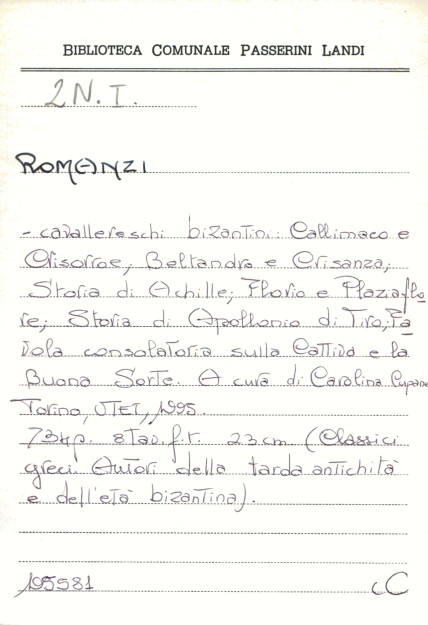 BIBLIOTECA COMUNALE PASSERINI LANDI
2N.I.
ROMANZI
- cavallereschi bizantini: Callimaco e
Crisorroe; Beltandro e Crisanza;
Storia di Achille; Florio e Plaziaflo
re; Storia di Apollonio di Tiro; Fa
vola consolatoria sulla Cattiva e la
Buona Sorte. A cura di Carolina Cupane
Torino, UTET, 1995.
734p. 8 tav. f.t. 23 cm (Classici
greci. Autori della tarda antichità
e dell'età bizantina).
195581
cC